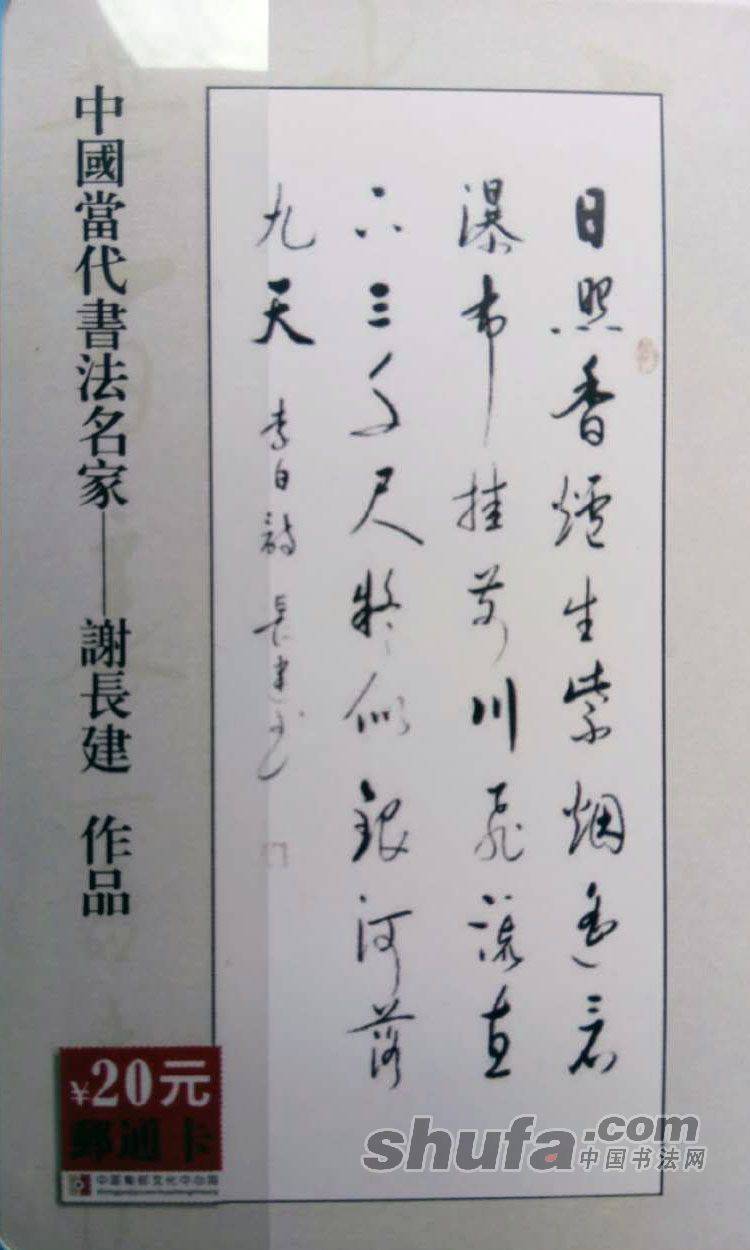 日照香爐生紫烟遥看
瀑布挂前川飛流直
下三千尺疑似銀河落
九天 李白詩 長建書
中國當代書法名家——謝長建 作品
¥20元
郵通卡
shufa.com
中国书法网